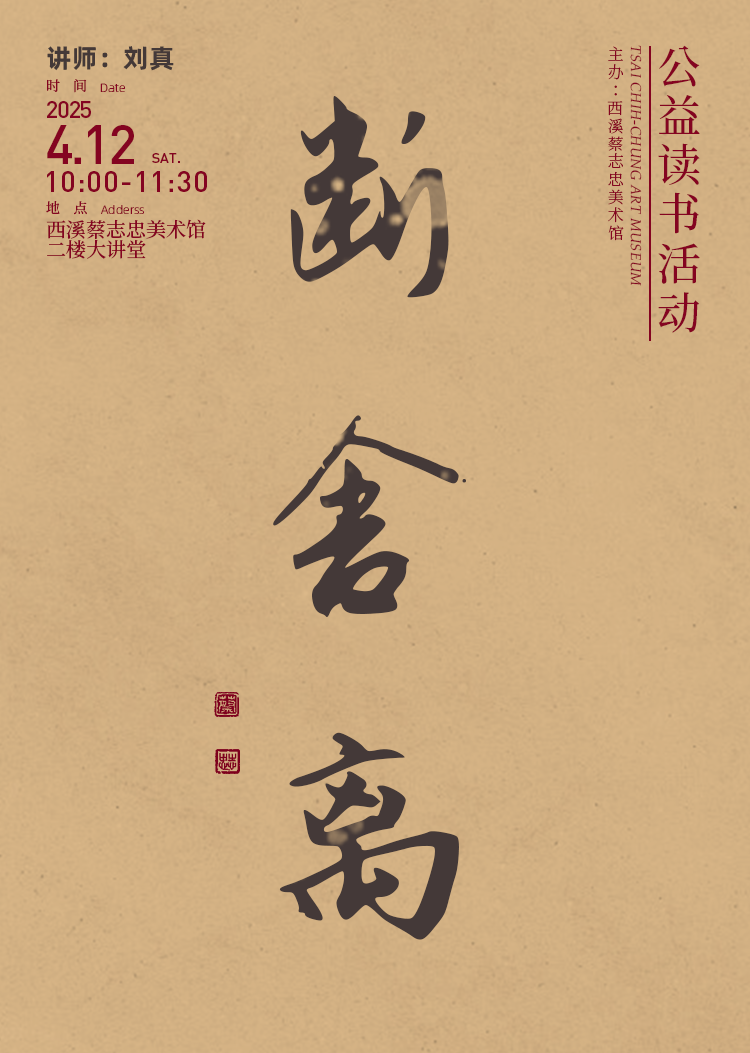 讲师：刘真
时 间 Date
2025
4.12 SAT.
10:00-11:30
地 点 Adderss
西溪蔡志忠美术馆
二楼大讲堂
公益读书活动
TSAI CHIH-CHUNG ART MUSEUM
主办：西溪蔡志忠美术馆
断舍离